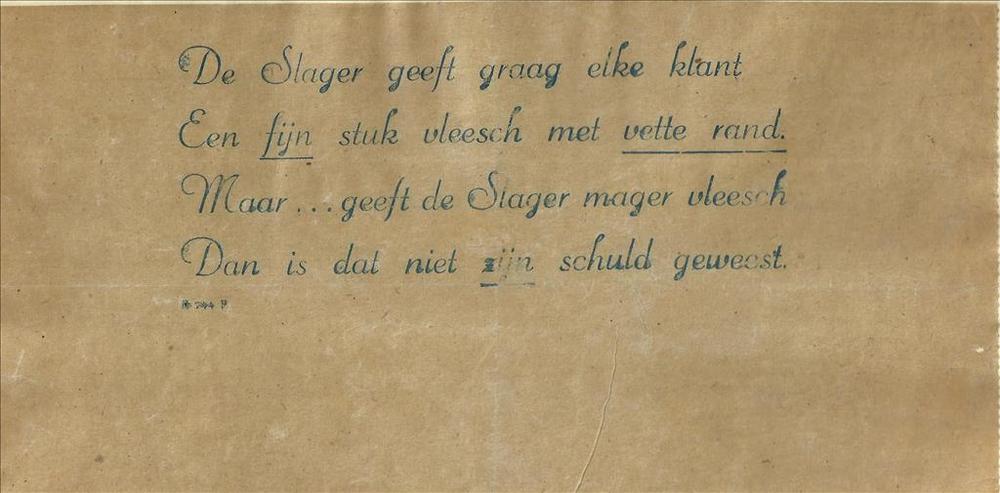 De Slager geeft graag elke klant
Een fijn stuk vleesch met vette rand.
Maar... geeft de Slager mager vleesch
Dan is dat niet zijn schuld geweest.